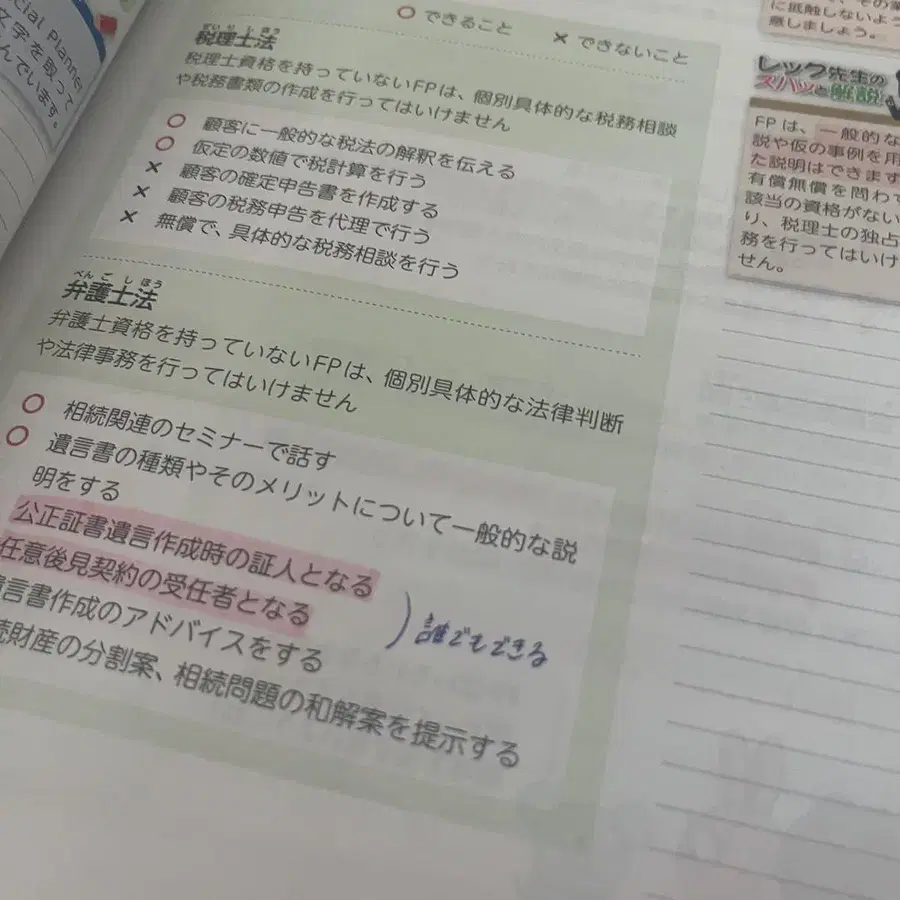 cial Planner
文字を取って
んでいます。
○ できること × できないこと
ぜいりしほう
税理士法
税理士資格を持っていないFPは、個別具体的な税務相談
や税務書類の作成を行ってはいけません
○ 顧客に一般的な税法の解釈を伝える
○ 仮定の数値で税計算を行う
× 顧客の確定申告書を作成する
× 顧客の税務申告を代理で行う
× 無償で、具体的な税務相談を行う
べんごしほう
弁護士法
弁護士資格を持っていないFPは、個別具体的な法律判断
や法律事務を行ってはいけません
○ 相続関連のセミナーで話す
○ 遺言書の種類やそのメリットについて一般的な説
明をする
公正証書遺言作成時の証人となる
任意後見契約の受任者となる
誰でもできる
言書作成のアドバイスをする
財産の分割案、相続問題の和解案を提示する
に抵触しないよう
意しましょう。
レック先生の
ズバッと解説!
FPは、一般的な
説や仮の事例を用
た説明はできます
有償無償を問わ
該当の資格がない
り、税理士の独占
務を行ってはいけ
せん。